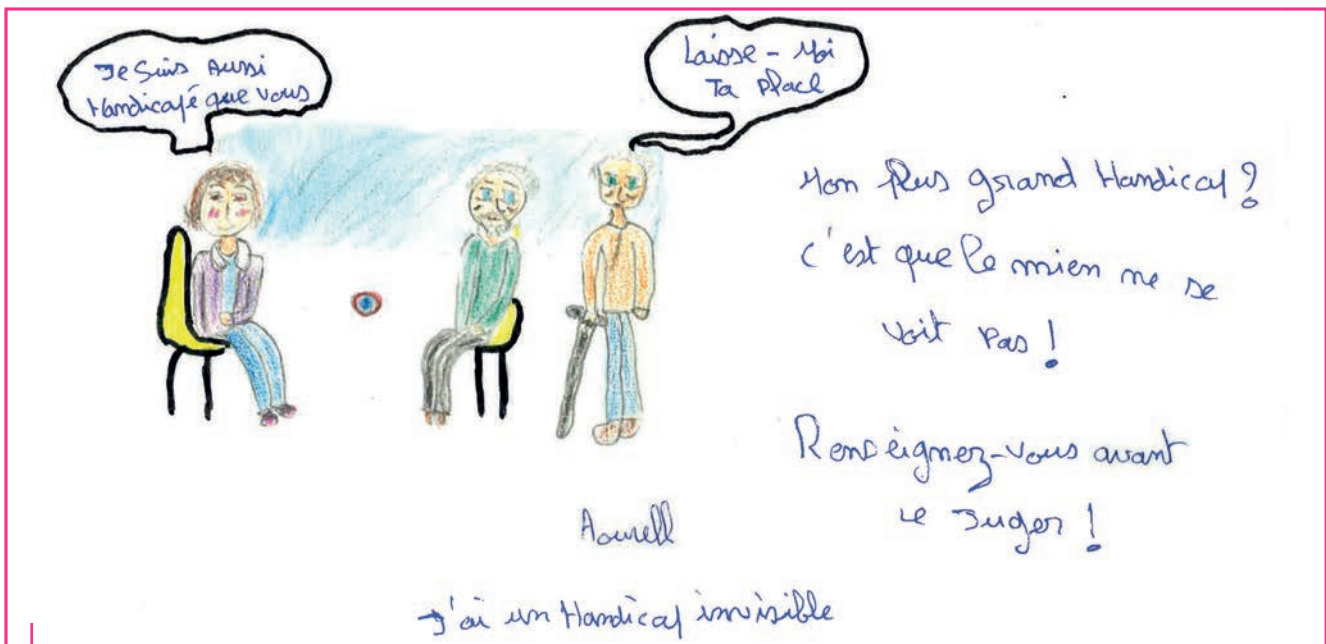 Je Suis Aussi
Handicapé que vous
Laisse-Moi
Ta Place
Mon plus grand Handicap ?
c'est que le mien ne se
voit pas !
Renseignez-vous avant
de Juger !
Aourell
J'ai un Handicap invisible